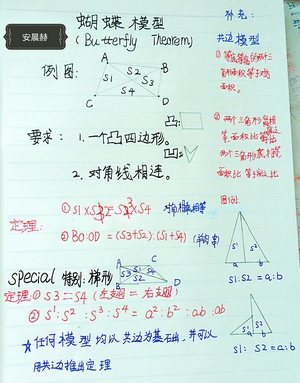 安晨赫
蝴蝶模型
(Butterfly Theorem)
例图:
A
B
S2
S1
S3
S4
C
D
凸:
要求: 1.一个凸四边形。
凹:
2.对角线相连。
定理:
S3=S2×S4
② BO:OD=(S3+S2):(S1+S4)
special 特别:梯形
A
B
S3 S1 S2
S4
C
D
定理:① S3=S4 (左翅=右翅)
② S1:S2:S3:S4=a²:b²:ab:ab
☆任何模型均以共边为基石出,并可以
用共边推出定理
补充:
共边模型
①
角形面积等于对
面积。
② 两个三角形高相
等,面积比等于
两个三角形底相等
面积比等于高上比
图例:
S1 S2
a b
S1:S2=a:b
S1 S2
a b
S1:S2=a:b